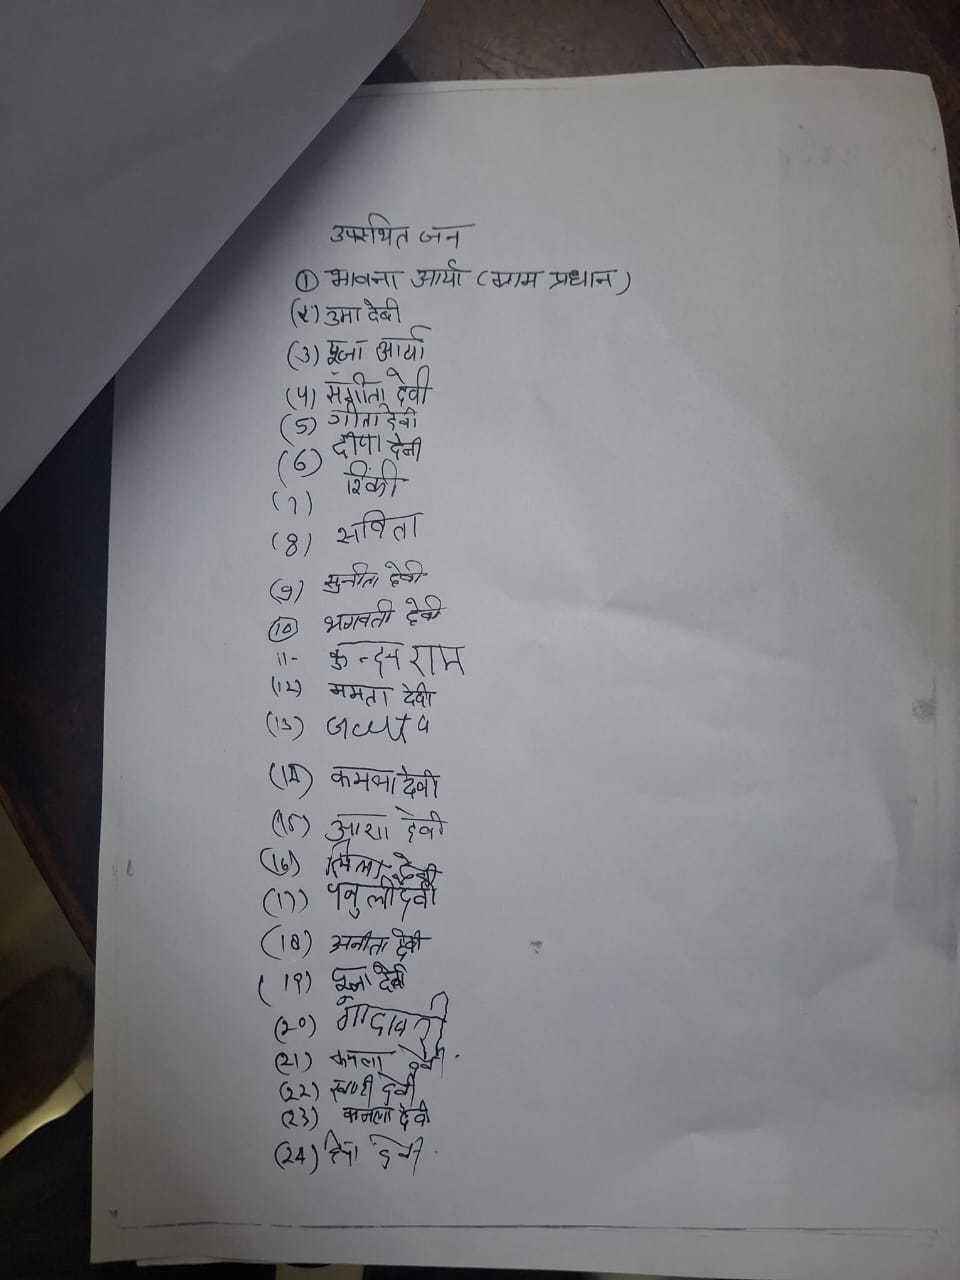 उपस्थित जन
① भावना आर्या (ग्राम प्रधान)
(2) उमा देवी
(3) पूजा आर्या
(4) संगीता देवी
(5) गीता देवी
(6) दीपा देवी
(7) रिंकी
(8) सविता
(9) सुनीता देवी
(10) भगवती देवी
11- कुन्दन राम
(12) ममता देवी
(13)
(14) कमला देवी
(15) आशा देवी
(16) देवी
(17) देवी
(18) अनीता देवी
(19) पूजा देवी
(20) गोदावरी
(21) कमला देवी
(22) देवी
(23) कमला देवी
(24) देवी